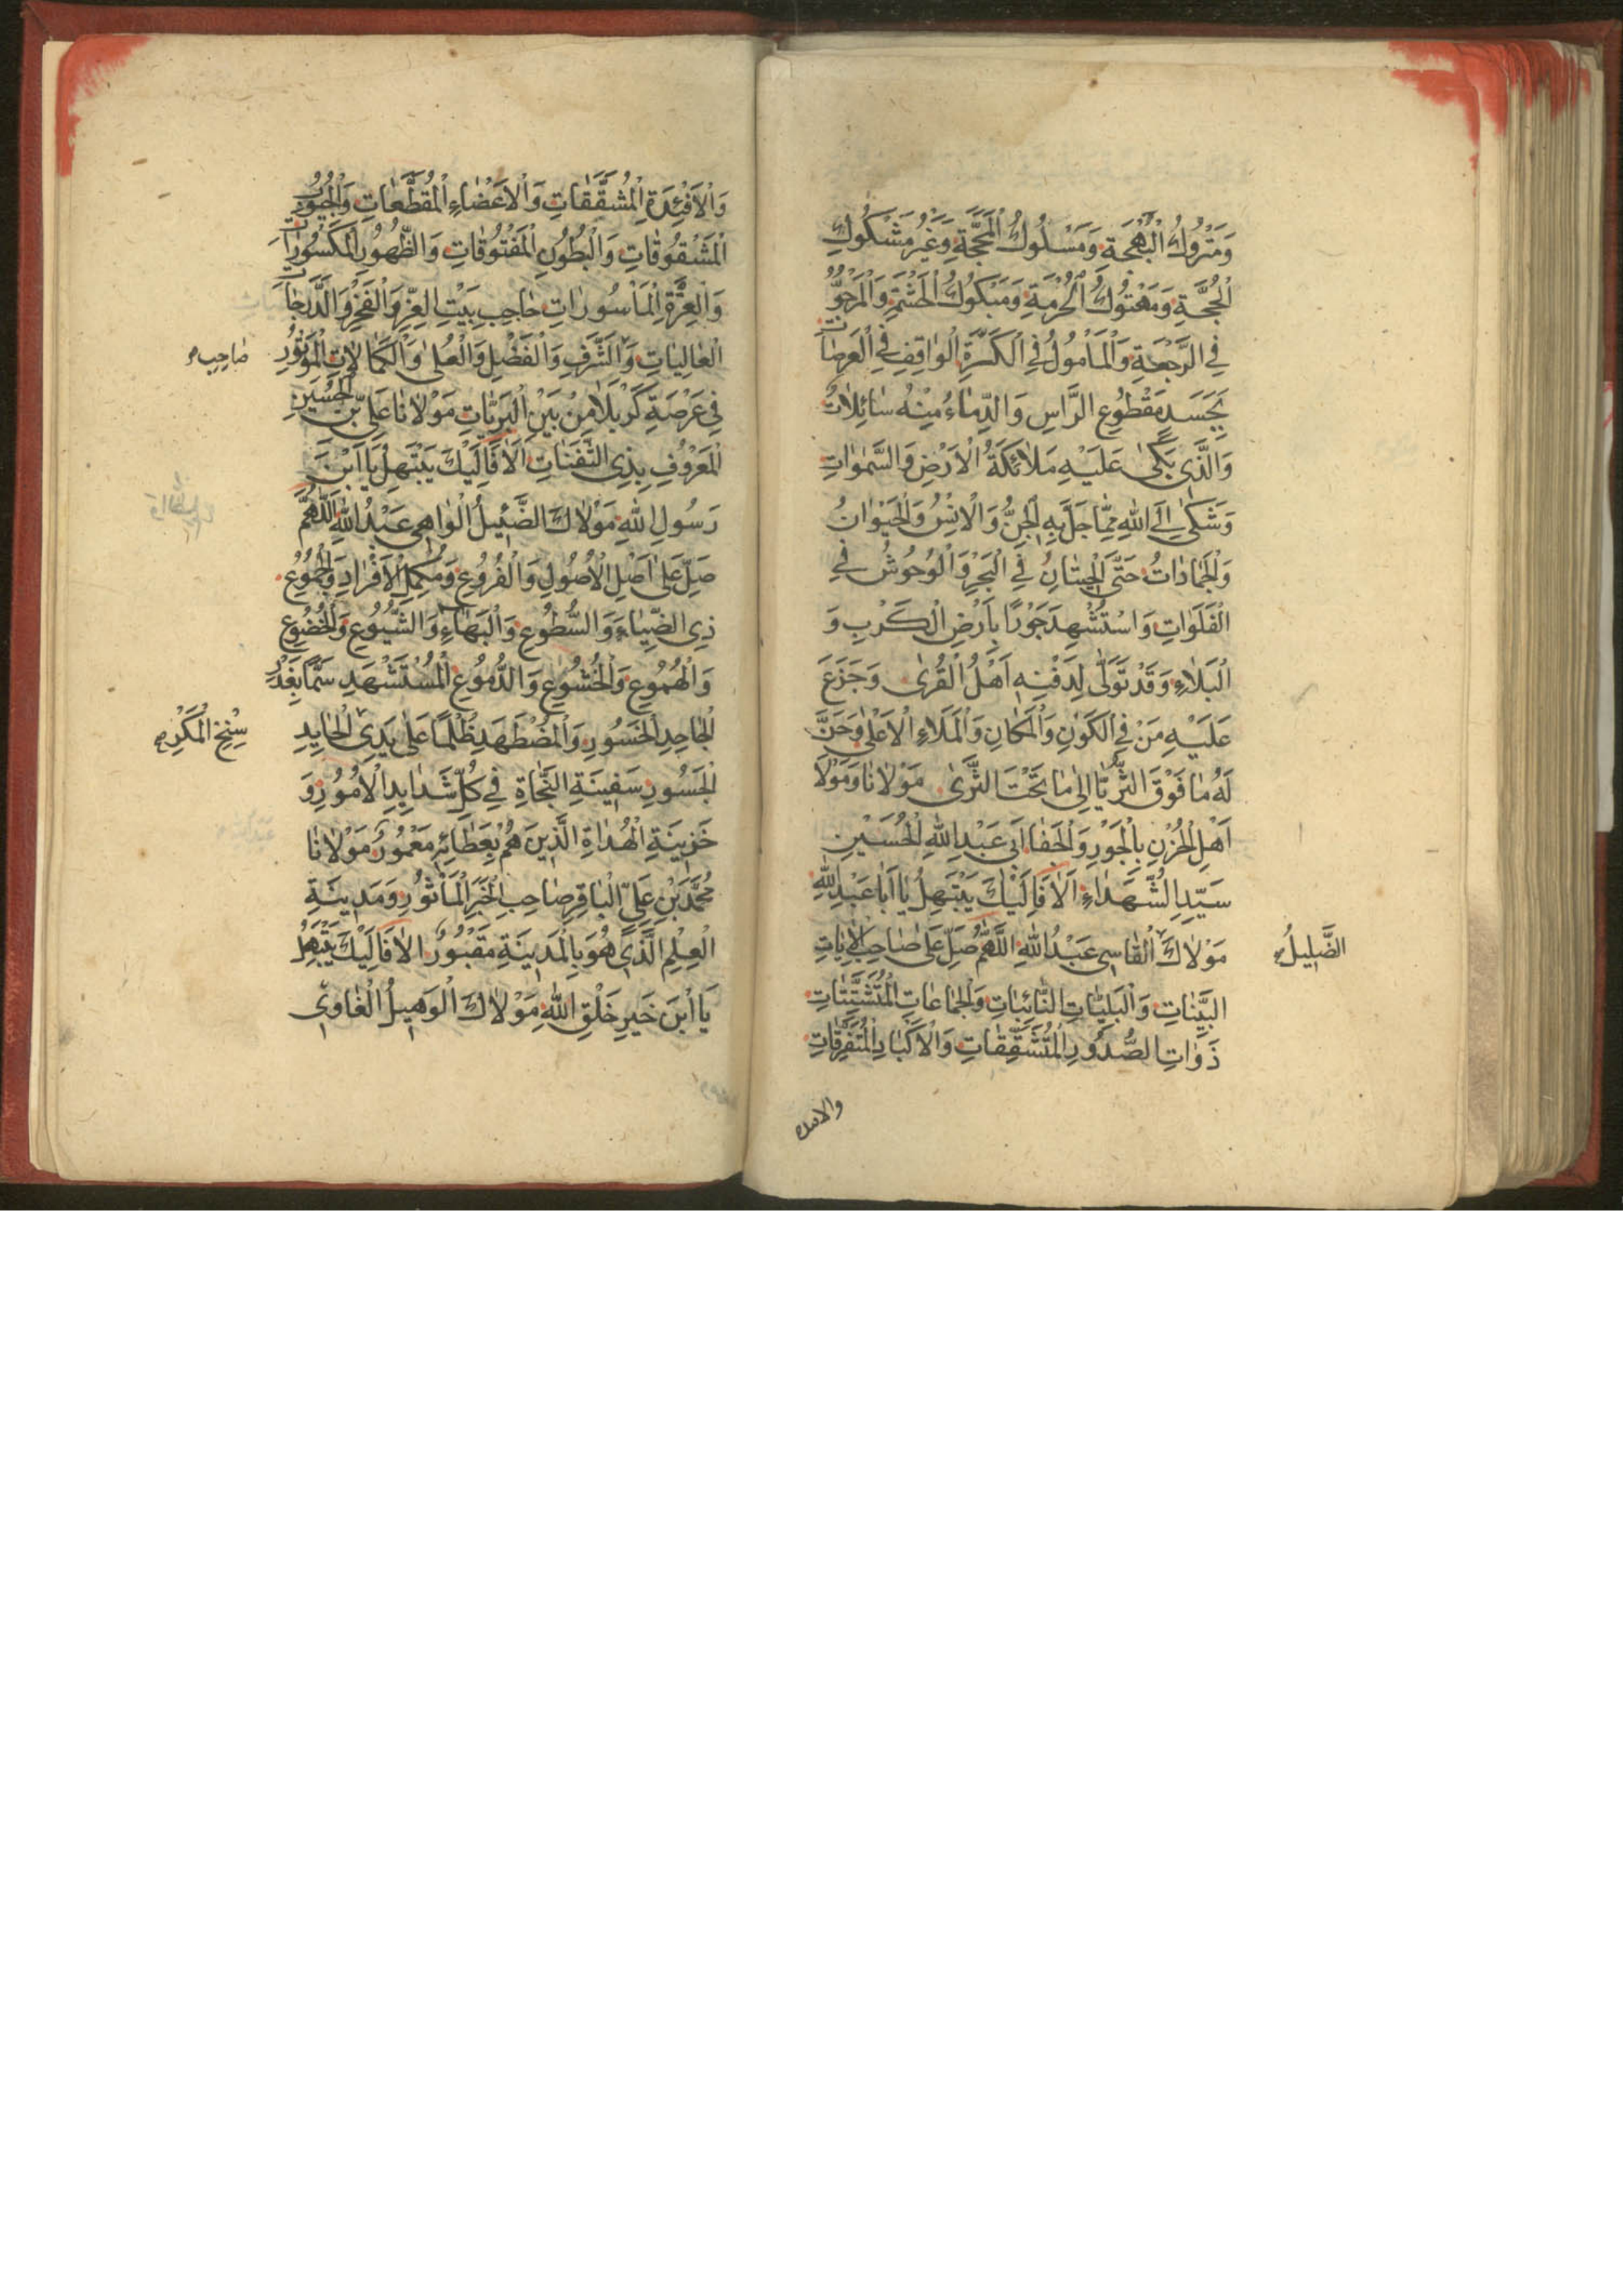 وَمَتْرُوكُ الْبَهْجَةِ وَمَسْلُوكُ الْمَحَجَّةِ وَغَيْرُ مَشْكُوكِ
الْحُجَّةِ وَمَهْتُوكُ الْحُرْمَةِ وَمَبْكُوكُ الْحَشَمِ وَالْمَرْجُوُّ
فِي الرَّجْعَةِ وَالْمَأْمُولُ فِي الْكَرَّةِ الْوَاقِفِ فِي الْعَرَصَاتِ
بِجَسَدٍ مَقْطُوعِ الرَّاسِ وَالدِّمَاءُ مِنْهُ سَائِلَاتٌ
وَالَّذِي بَكَىٰ عَلَيْهِ مَلَائِكَةُ الْاَرْضِ وَالسَّمٰوَاتِ
وَشَكَىٰ اِلَى اللّٰهِ مِمَّا جَلَّ بِهِ الْجِنُّ وَالْاِنْسُ وَالْحَيْوَانُ
وَالْجَمَادَاتُ حَتَّى الْحِيتَانُ فِي الْبَحْرِ وَالْوُحُوشُ فِي
الْفَلَوَاتِ وَاسْتُشْهِدَ جَوْرًا بِاَرْضِ الْكَرْبِ وَ
الْبَلَاءِ وَقَدْ تَوَلّٰى لِدَفْنِهِ اَهْلُ الْقُرَىٰ وَجَزَعَ
عَلَيْهِ مَنْ فِي الْكَوْنِ وَالْمَكَانِ وَالْمَلَاءِ الْاَعْلٰى وَحَنَّ
لَهُ مَا فَوْقَ الثُّرَيَّا اِلٰى مَا تَحْتَ الثَّرَىٰ مَوْلَانَا وَمَوْلَا
اَهْلِ الْحُزْنِ بِالْجَوْرِ وَالْجَفَا اَبِي عَبْدِ اللّٰهِ الْحُسَيْنِ
سَيِّدِ الشُّهَدَاءِ اَلَا فَاِلَيْكَ يَبْتَهِلُ يَا اَبَا عَبْدِ اللّٰهِ
مَوْلَاكَ الْقَاسِي عَبْدُ اللّٰهِ اَللّٰهُمَّ صَلِّ عَلٰى صَاحِبِ الْاٰيَاتِ
الضَّلِيلُ
الْبَيِّنَاتِ وَالْبَلِيَّاتِ النَّائِبَاتِ وَالْجَمَاعَاتِ الْمُتَشَتِّتَاتِ
ذَوَاتِ الصُّدُورِ الْمُتَشَقِّقَاتِ وَالْاَكْبَادِ الْمُتَفَرِّقَاتِ
وَالْاَفْئِدَةِ الْمُشَقَّقَاتِ وَالْاَعْضَاءِ الْمُقَطَّعَاتِ وَالْجُيُوبِ
الْمَشْقُوقَاتِ وَالْبُطُونِ الْمَفْتُوقَاتِ وَالظُّهُورِ الْمَكْسُورَاتِ
وَالْعِتْرَةِ الْمَأْسُورَاتِ حَاجِبِ بَيْتِ الْعِزِّ وَالْفَخْرِ وَالدَّرَجَاتِ
الْعَالِيَاتِ وَالشَّرَفِ وَالْفَضْلِ وَالْعُلٰى وَالْكَمَالَاتِ الْمَوْتُورِ
صَاحِبِ
فِي عَرْصَةِ كَرْبَلَا مِنْ بَيْنِ الْبَرِيَّاتِ مَوْلَانَا عَلِيِّ بْنِ الْحُسَيْنِ
الْمَعْرُوفِ بِذِي الثَّفَنَاتِ اَلَا فَاِلَيْكَ يَبْتَهِلُ يَا ابْنَ
رَسُولِ اللّٰهِ مَوْلَاكَ الضَّئِيلُ الْوَاهِي عَبْدُ اللّٰهِ اَللّٰهُمَّ
صَلِّ عَلٰى اَصْلِ الْاُصُولِ وَالْفُرُوعِ وَمُكَمِّلِ الْاَفْرَادِ وَالْجُمُوعِ
ذِي الضِّيَاءِ وَالسُّطُوعِ وَالْبَهَاءِ وَالشُّيُوعِ وَالْخُضُوعِ
وَالْهُمُوعِ وَالْخُشُوعِ وَالدُّمُوعِ الْمُسْتَشْهَدِ سَمًّا بِغَدْرِ
الْجَاحِدِ الْخَسُورِ وَالْمُضْطَهَدِ ظُلْمًا عَلٰى يَدَيِ الْحَايِدِ
سِنْخِ الْمَكْرِ
الْجَسُورِ سَفِينَةِ النَّجَاةِ فِي كُلِّ شَدَايِدِ الْاُمُورِ وَ
خَزِينَةِ الْهُدَاةِ الَّذِينَ هُمْ بِعَطَائِهِ مَعْمُورٌ مَوْلَانَا
مُحَمَّدِ بْنِ عَلِيٍّ الْبَاقِرِ صَاحِبِ الْخَبَرِ الْمَأْثُورِ وَمَدِينَةِ
الْعِلْمِ الَّذِي هُوَ بِالْمَدِينَةِ مَقْبُورٌ اَلَا فَاِلَيْكَ يَبْتَهِلُ
يَا ابْنَ خَيْرِ خَلْقِ اللّٰهِ مَوْلَاكَ الْوَهِيلُ الْغَاوِي